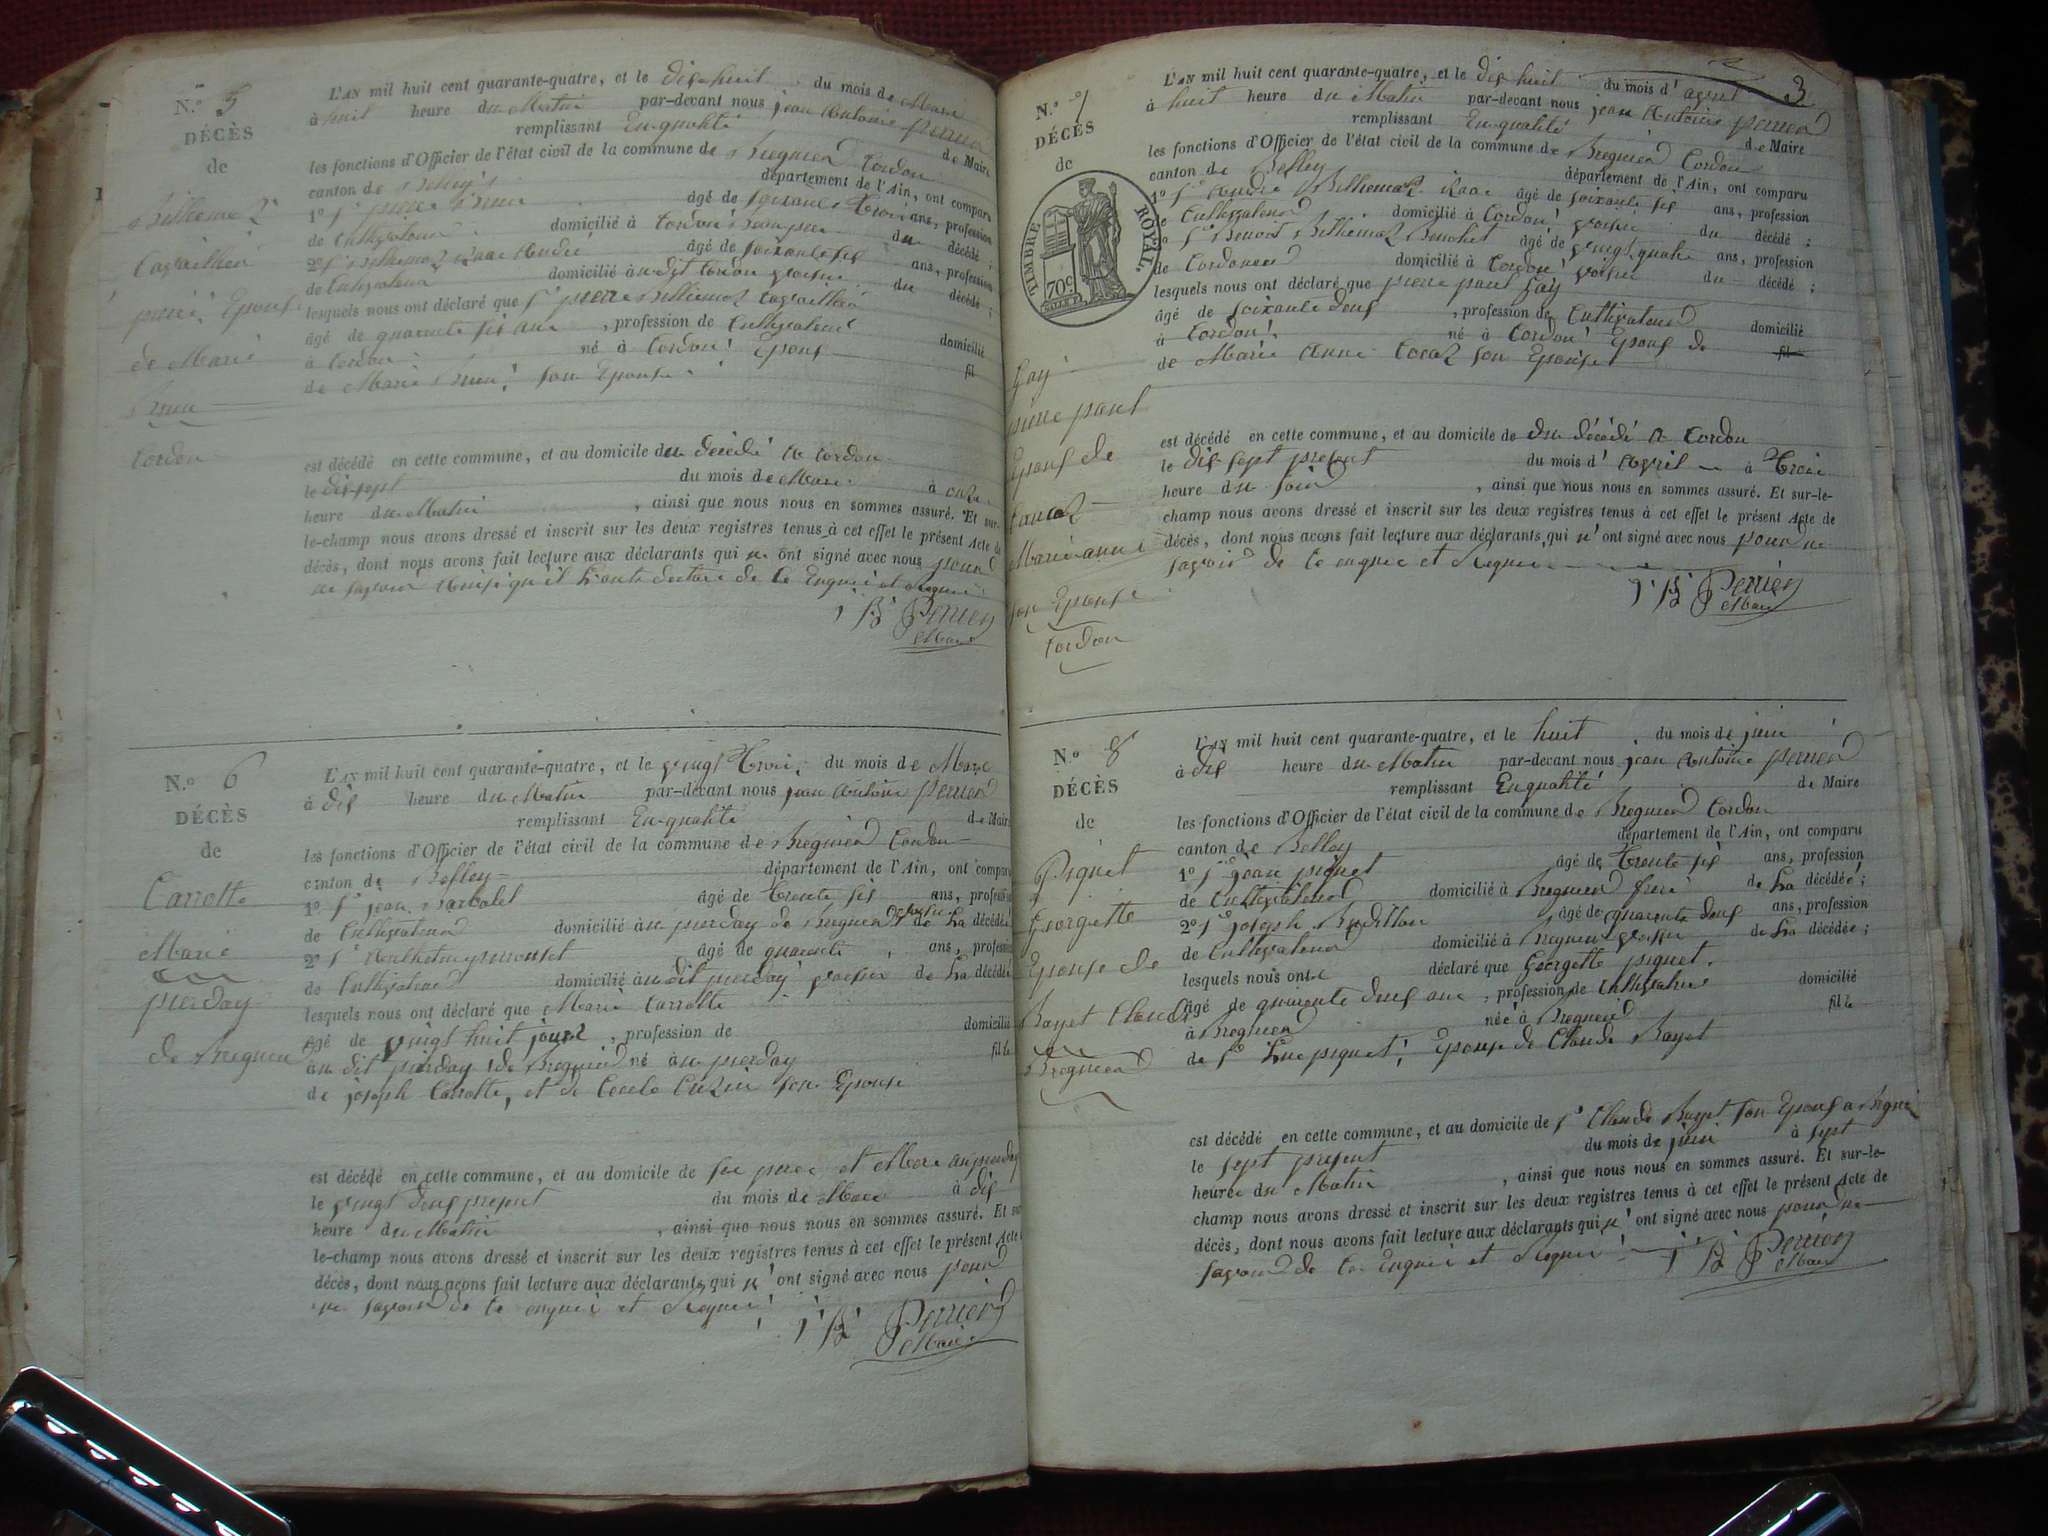 N.º 5
DÉCÈS
de
Billiemaz
Cavaillié
pierre Epoux
de Marie
Brun
Cordon
L'AN mil huit cent quarante-quatre, et le dix huit du mois de Mars
à huit heure du Matin par-devant nous jean Antoine perrier
remplissant En qualité de Maire
les fonctions d'Officier de l'état civil de la commune de Bregnier Cordon
canton de Belley département de l'Ain, ont comparu
1º Sr pierre Brun âgé de soixante trois ans, profession
de Cultivateur domicilié à Cordon Beaupere du décédé ;
2º Sr Billiemaz André âgé de soixante six ans, profession
de Cultivateur domicilié à udit Cordon voisin du décédé ;
lesquels nous ont déclaré que Sr pierre Billiemaz
âgé de quarante six ans, profession de Cultivateur domicilié
à Cordon né à Cordon Epoux fil
de Marie Brun son Epouse
est décédé en cette commune, et au domicile du décédé à Cordon
le dix sept du mois de Mars à onze
heure du Matin, ainsi que nous nous en sommes assuré. Et sur-
le-champ nous avons dressé et inscrit sur les deux registres tenus à cet effet le présent Acte de
décès, dont nous avons fait lecture aux déclarants qui n'ont signé avec nous pour
ne savoir ainsi qu'il l'ont declaré de ce Enquis et Requis
Perrier
Maire
N.º 6
DÉCÈS
de
Carrotte
Marie
pierday
de Bregnier
L'AN mil huit cent quarante-quatre, et le vingt trois du mois de Mars
à dix heure du Matin par-devant nous jean Antoine perrier
remplissant En qualité de Maire
les fonctions d'Officier de l'état civil de la commune de Bregnier Cordon
canton de Belley département de l'Ain, ont comparu
1º Sr jean Barbalet âgé de trente six ans, profession
de Cultivateur domicilié à u pierday de Bregnier voisin de La décédée
2º Sr âgé de quarante ans, profession
de Cultivateur domicilié à u dit pierday voisin de La décédée
lesquels nous ont déclaré que Marie Carrotte
âgé de vingt huit jours, profession de domicilié
au dit pierday de Bregnier né à u pierday fille
de joseph Carrotte, et de Cecile Cuzin son Epouse
est décédé en cette commune, et au domicile de ses pere et Mere au pierday
le vingt deux present du mois de Mars à dix
heure du Matin, ainsi que nous nous en sommes assuré. Et sur
le-champ nous avons dressé et inscrit sur les deux registres tenus à cet effet le présent Acte
décès, dont nous avons fait lecture aux déclarants qui n'ont signé avec nous pour
ne savoir de ce enquis et Requis
Perrier
Maire
3
N.º 7
DÉCÈS
de
TIMBRE ROYAL.
70 c
Gay
pierre paul
Epoux de
Cocaz
Marie anne
son Epouse
Cordon
L'AN mil huit cent quarante-quatre, et le dix huit du mois d'avril
à huit heure du Matin par-devant nous jean Antoine perrier
remplissant En qualité de Maire
les fonctions d'Officier de l'état civil de la commune de Bregnier Cordon
canton de Belley département de l'Ain, ont comparu
1º Sr André Billiemaz âgé de soixante six ans, profession
de Cultivateur domicilié à Cordon voisin du décédé ;
2º Sr Benoit Billiemaz âgé de vingt quatre ans, profession
de Cordonnier domicilié à Cordon voisin du décédé ;
lesquels nous ont déclaré que pierre paul Gay
âgé de soixante deux, profession de Cultivateur domicilié
à Cordon né à Cordon Epoux de fil
de Marie Anne Cocaz son Epouse
est décédé en cette commune, et au domicile de du décédé à Cordon
le dix sept present du mois d'Avril à trois
heure du soir, ainsi que nous nous en sommes assuré. Et sur-le-
champ nous avons dressé et inscrit sur les deux registres tenus à cet effet le présent Acte de
décès, dont nous avons fait lecture aux déclarants qui n'ont signé avec nous pour ne
savoir de ce enquis et Requis
Perrier
Maire
N.º 8
DÉCÈS
de
Piquet
Georgette
Epouse de
Bayet Claude
Bregnier
L'AN mil huit cent quarante-quatre, et le huit du mois de juin
à dix heure du Matin par-devant nous jean Antoine perrier
remplissant En qualité de Maire
les fonctions d'Officier de l'état civil de la commune de Bregnier Cordon
canton de Belley département de l'Ain, ont comparu
1º Sr jean piquet âgé de trente six ans, profession
de Cultivateur domicilié à Bregnier frere de La décédée ;
2º Sr joseph Budillon âgé de quarante deux ans, profession
de Cultivateur domicilié à Bregnier voisin de La décédée ;
lesquels nous ont déclaré que Georgette piquet
âgé de quarante deux ans, profession de Cultivatrice domicilié
à Bregnier née à Bregnier fille
de Sr piquet, Epouse de Claude Bayet
est décédé en cette commune, et au domicile de Sr Claude Bayet son Epoux a Bregnier
le sept present du mois de juin à sept
heure du Matin, ainsi que nous nous en sommes assuré. Et sur-le-
champ nous avons dressé et inscrit sur les deux registres tenus à cet effet le présent Acte de
décès, dont nous avons fait lecture aux déclarants qui n'ont signé avec nous pour ne
savoir de ce Enquis et Requis
Perrier
Maire